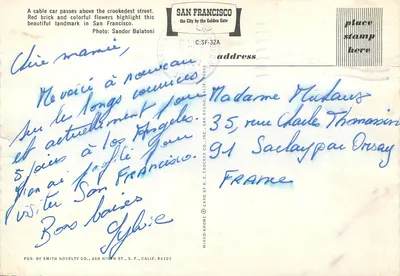 A cable car passes above the crookedest street.
Red brick and colorful flowers highlight this
beautiful landmark in San Francisco.
Photo: Sandor Balatoni
SAN FRANCISCO
the City by the Golden Gate
C:SF-32A
address
place
stamp
here
Chère mamie,
Me voici à nouveau
sur les longs courriers,
et actuellement pour
5 jours à Los Angeles.
J'en ai profité pour
visiter San Francisco.
Bons baisers
Sylvie
Madame
35, rue Charles Thomassin
91 Saclay par Orsay
FRANCE
PUB. BY SMITH NOVELTY CO., 460 NINTH ST., S.F., CALIF. 94103